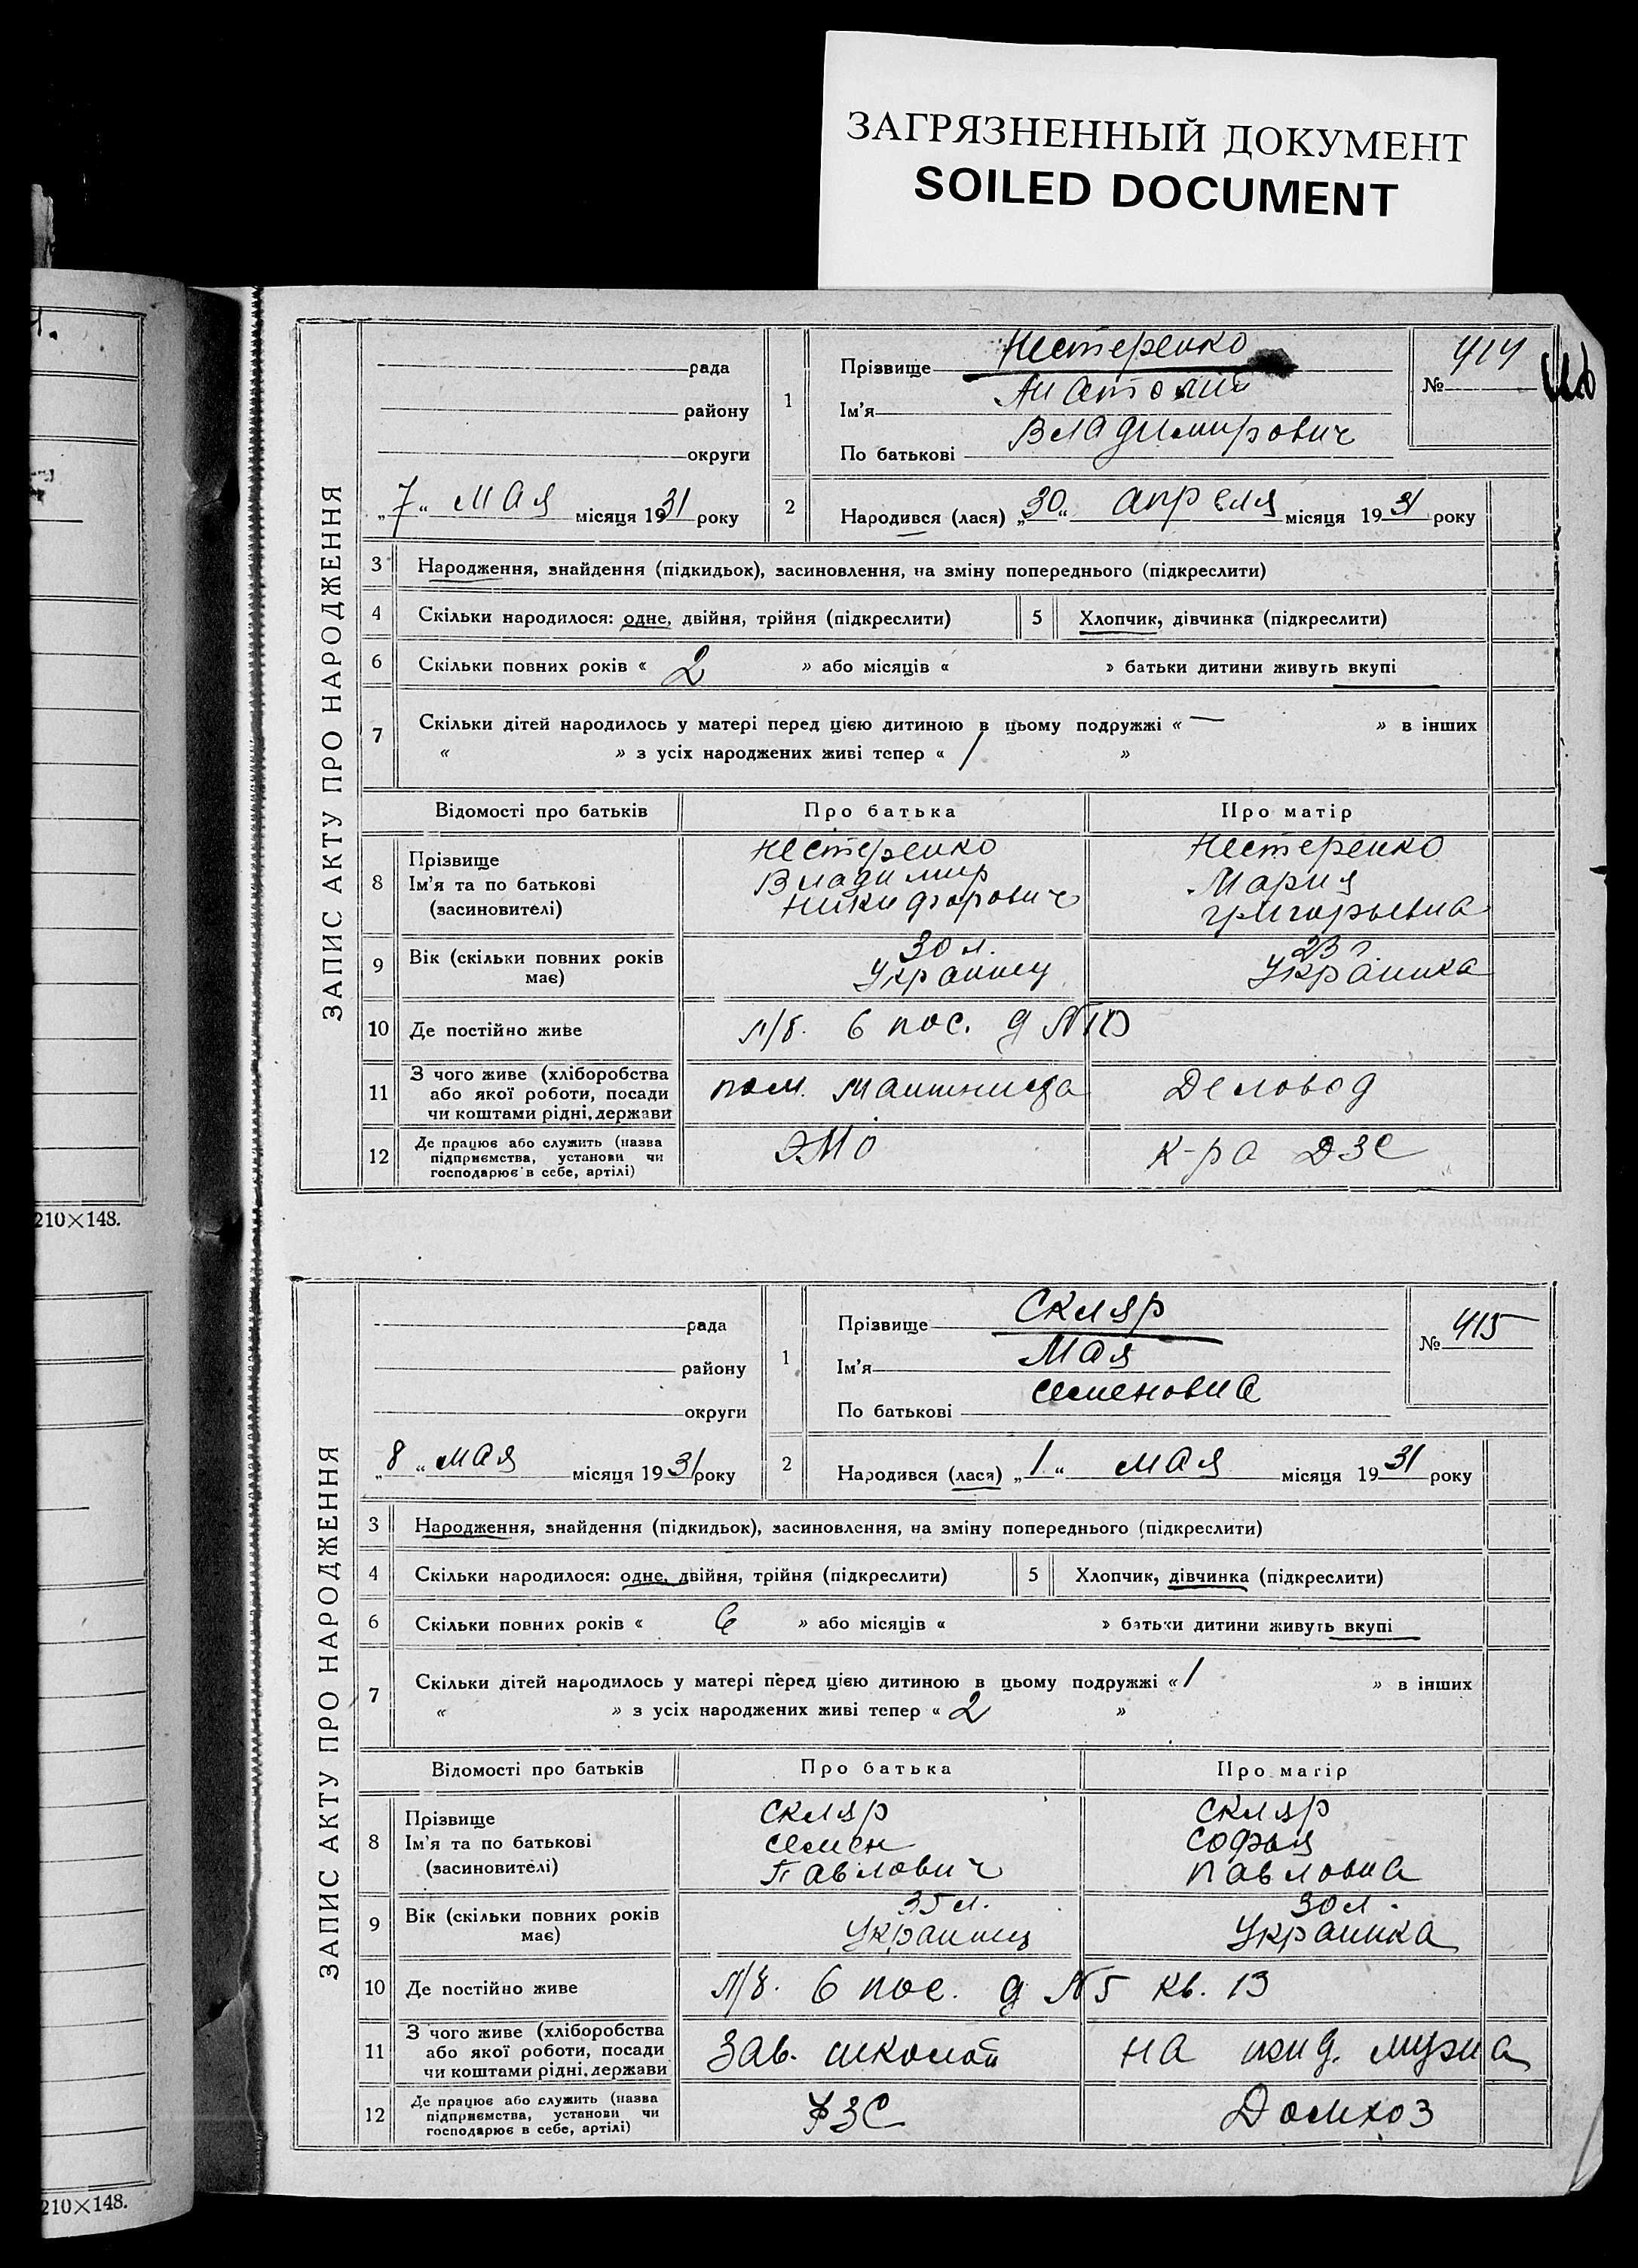 ЗАГРЯЗНЕННЫЙ ДОКУМЕНТ
SOILED DOCUMENT
210×148.
210×148.
ЗАПИС АКТУ ПРО НАРОДЖЕННЯ
рада
району
округи
„7“ мая місяця 1931 року
1
Прізвище Нестеренко
Ім’я Анатолий
По батькові Владимирович
№ 414
2
Народився (лася) „30“ апреля місяця 1931 року
3 Народження, знайдення (підкидьок), засиновлення, на зміну попереднього (підкреслити)
4 Скільки народилося: одне, двійня, трійня (підкреслити) 5 Хлопчик, дівчинка (підкреслити)
6 Скільки повних років « 2 » або місяців « » батьки дитини живуть вкупі
7 Скільки дітей народилось у матері перед цією дитиною в цьому подружжі « — » в інших
« » з усіх народжених живі тепер « 1 »
Відомості про батьків Про батька Про матір
8 Прізвище Нестеренко Нестеренко
Ім’я та по батькові Владимир Мария
(засновителі) Никифорович Григорьевна
9 Вік (скільки повних років має) 30 л. 23 г
Украинец Украинка
10 Де постійно живе 6 пос. д N10
11 З чого живе (хліборобства або якої роботи, посади чи коштами рідні, держави пом. машиниста Деловод
12 Де працює або служить (назва підприємства, установи чи господарює в себе, артілі) ЭМО к-ра ДЗС
ЗАПИС АКТУ ПРО НАРОДЖЕННЯ
рада
району
округи
„8“ мая місяця 1931 року
1
Прізвище Скляр
Ім’я Мая
По батькові Семеновна
№ 415
2
Народився (лася) „1“ мая місяця 1931 року
3 Народження, знайдення (підкидьок), засиновлення, на зміну попереднього (підкреслити)
4 Скільки народилося: одне, двійня, трійня (підкреслити) 5 Хлопчик, дівчинка (підкреслити)
6 Скільки повних років « 6 » або місяців « » батьки дитини живуть вкупі
7 Скільки дітей народилось у матері перед цією дитиною в цьому подружжі « 1 » в інших
« » з усіх народжених живі тепер « 2 »
Відомості про батьків Про батька Про матір
8 Прізвище Скляр Скляр
Ім’я та по батькові Семен Софья
(засиновителі) Павлович Павловна
9 Вік (скільки повних років має) 35 л. 30 л.
Украинец Украинка
10 Де постійно живе 6 пос. д N5 кв. 13
11 З чого живе (хліборобства або якої роботи, посади чи коштами рідні, держави Зав. школой на ижд. мужа
12 Де працює або служить (назва підприємства, установи чи господарює в себе, артілі) Домхоз